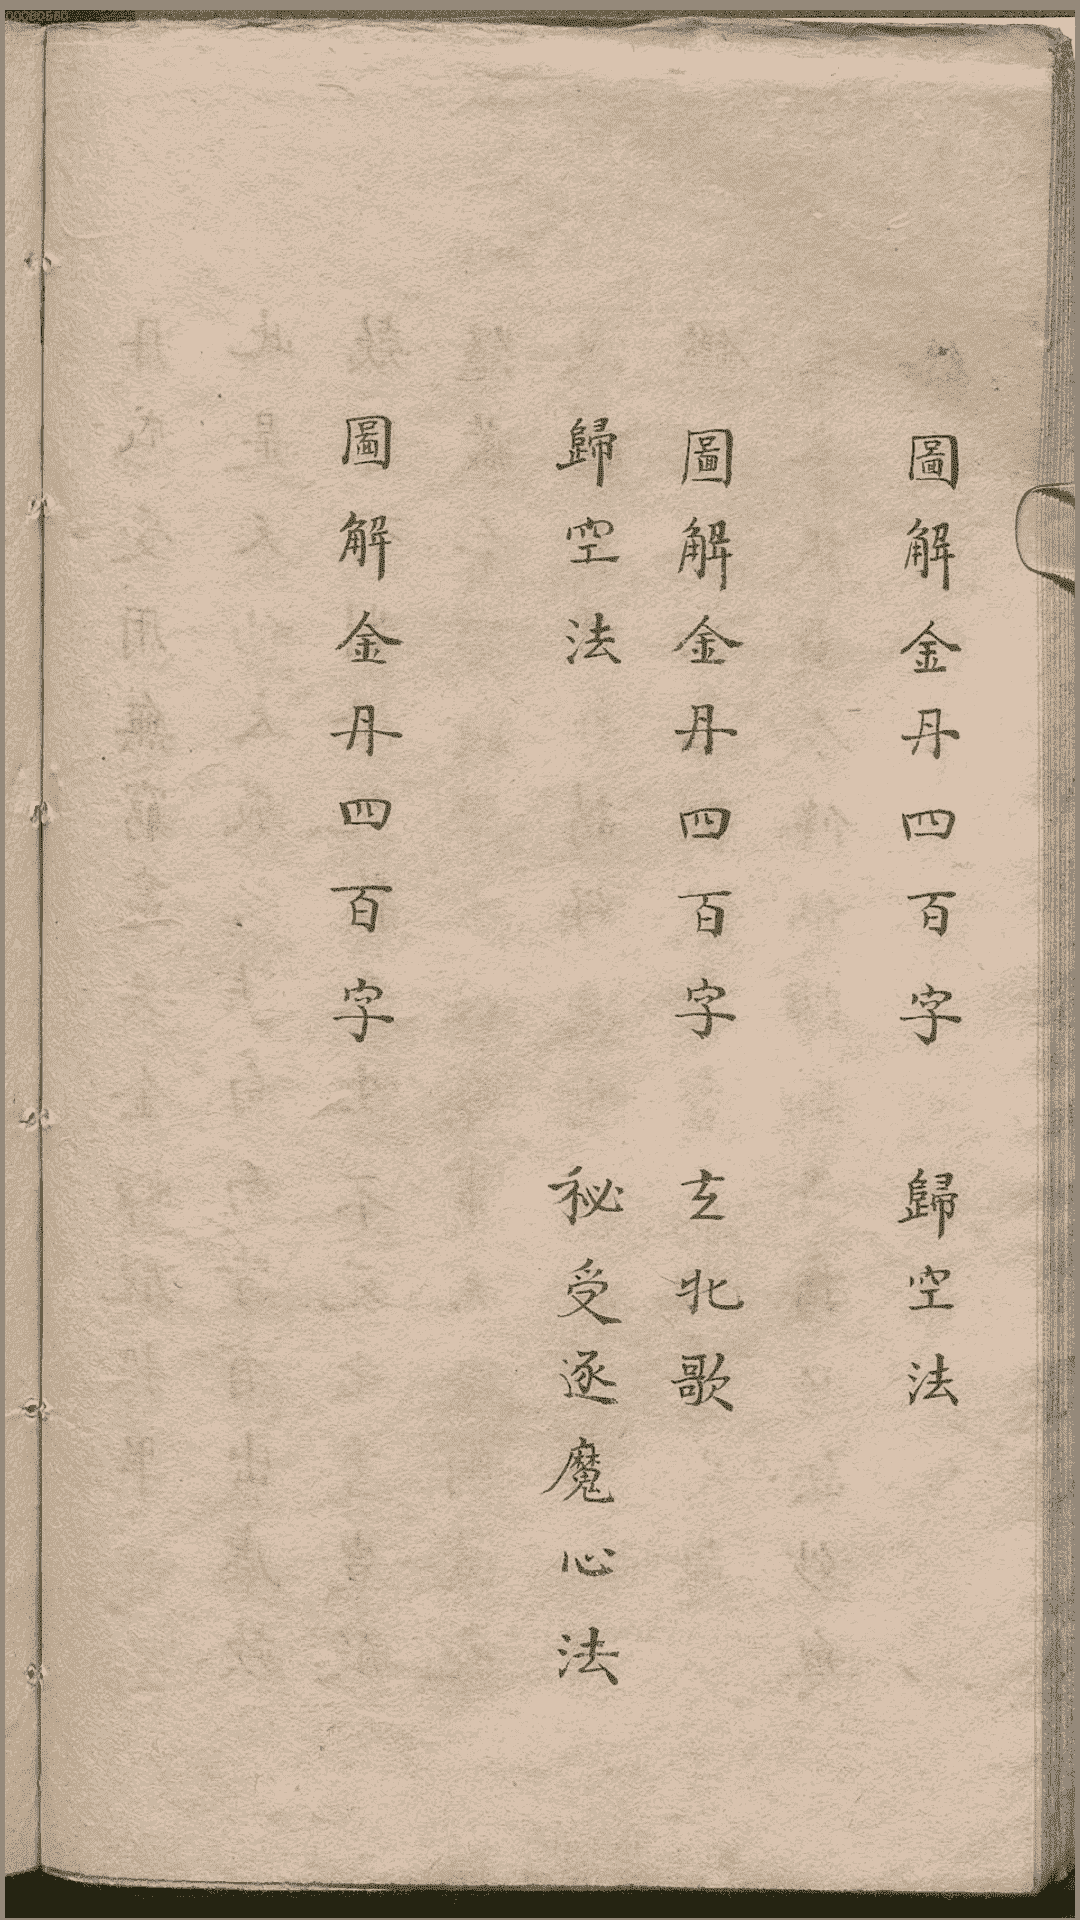 圖解金丹四百字 歸空法
圖解金丹四百字 玄北歌
歸空法 祕受逐魔心法
圖解金丹四百字